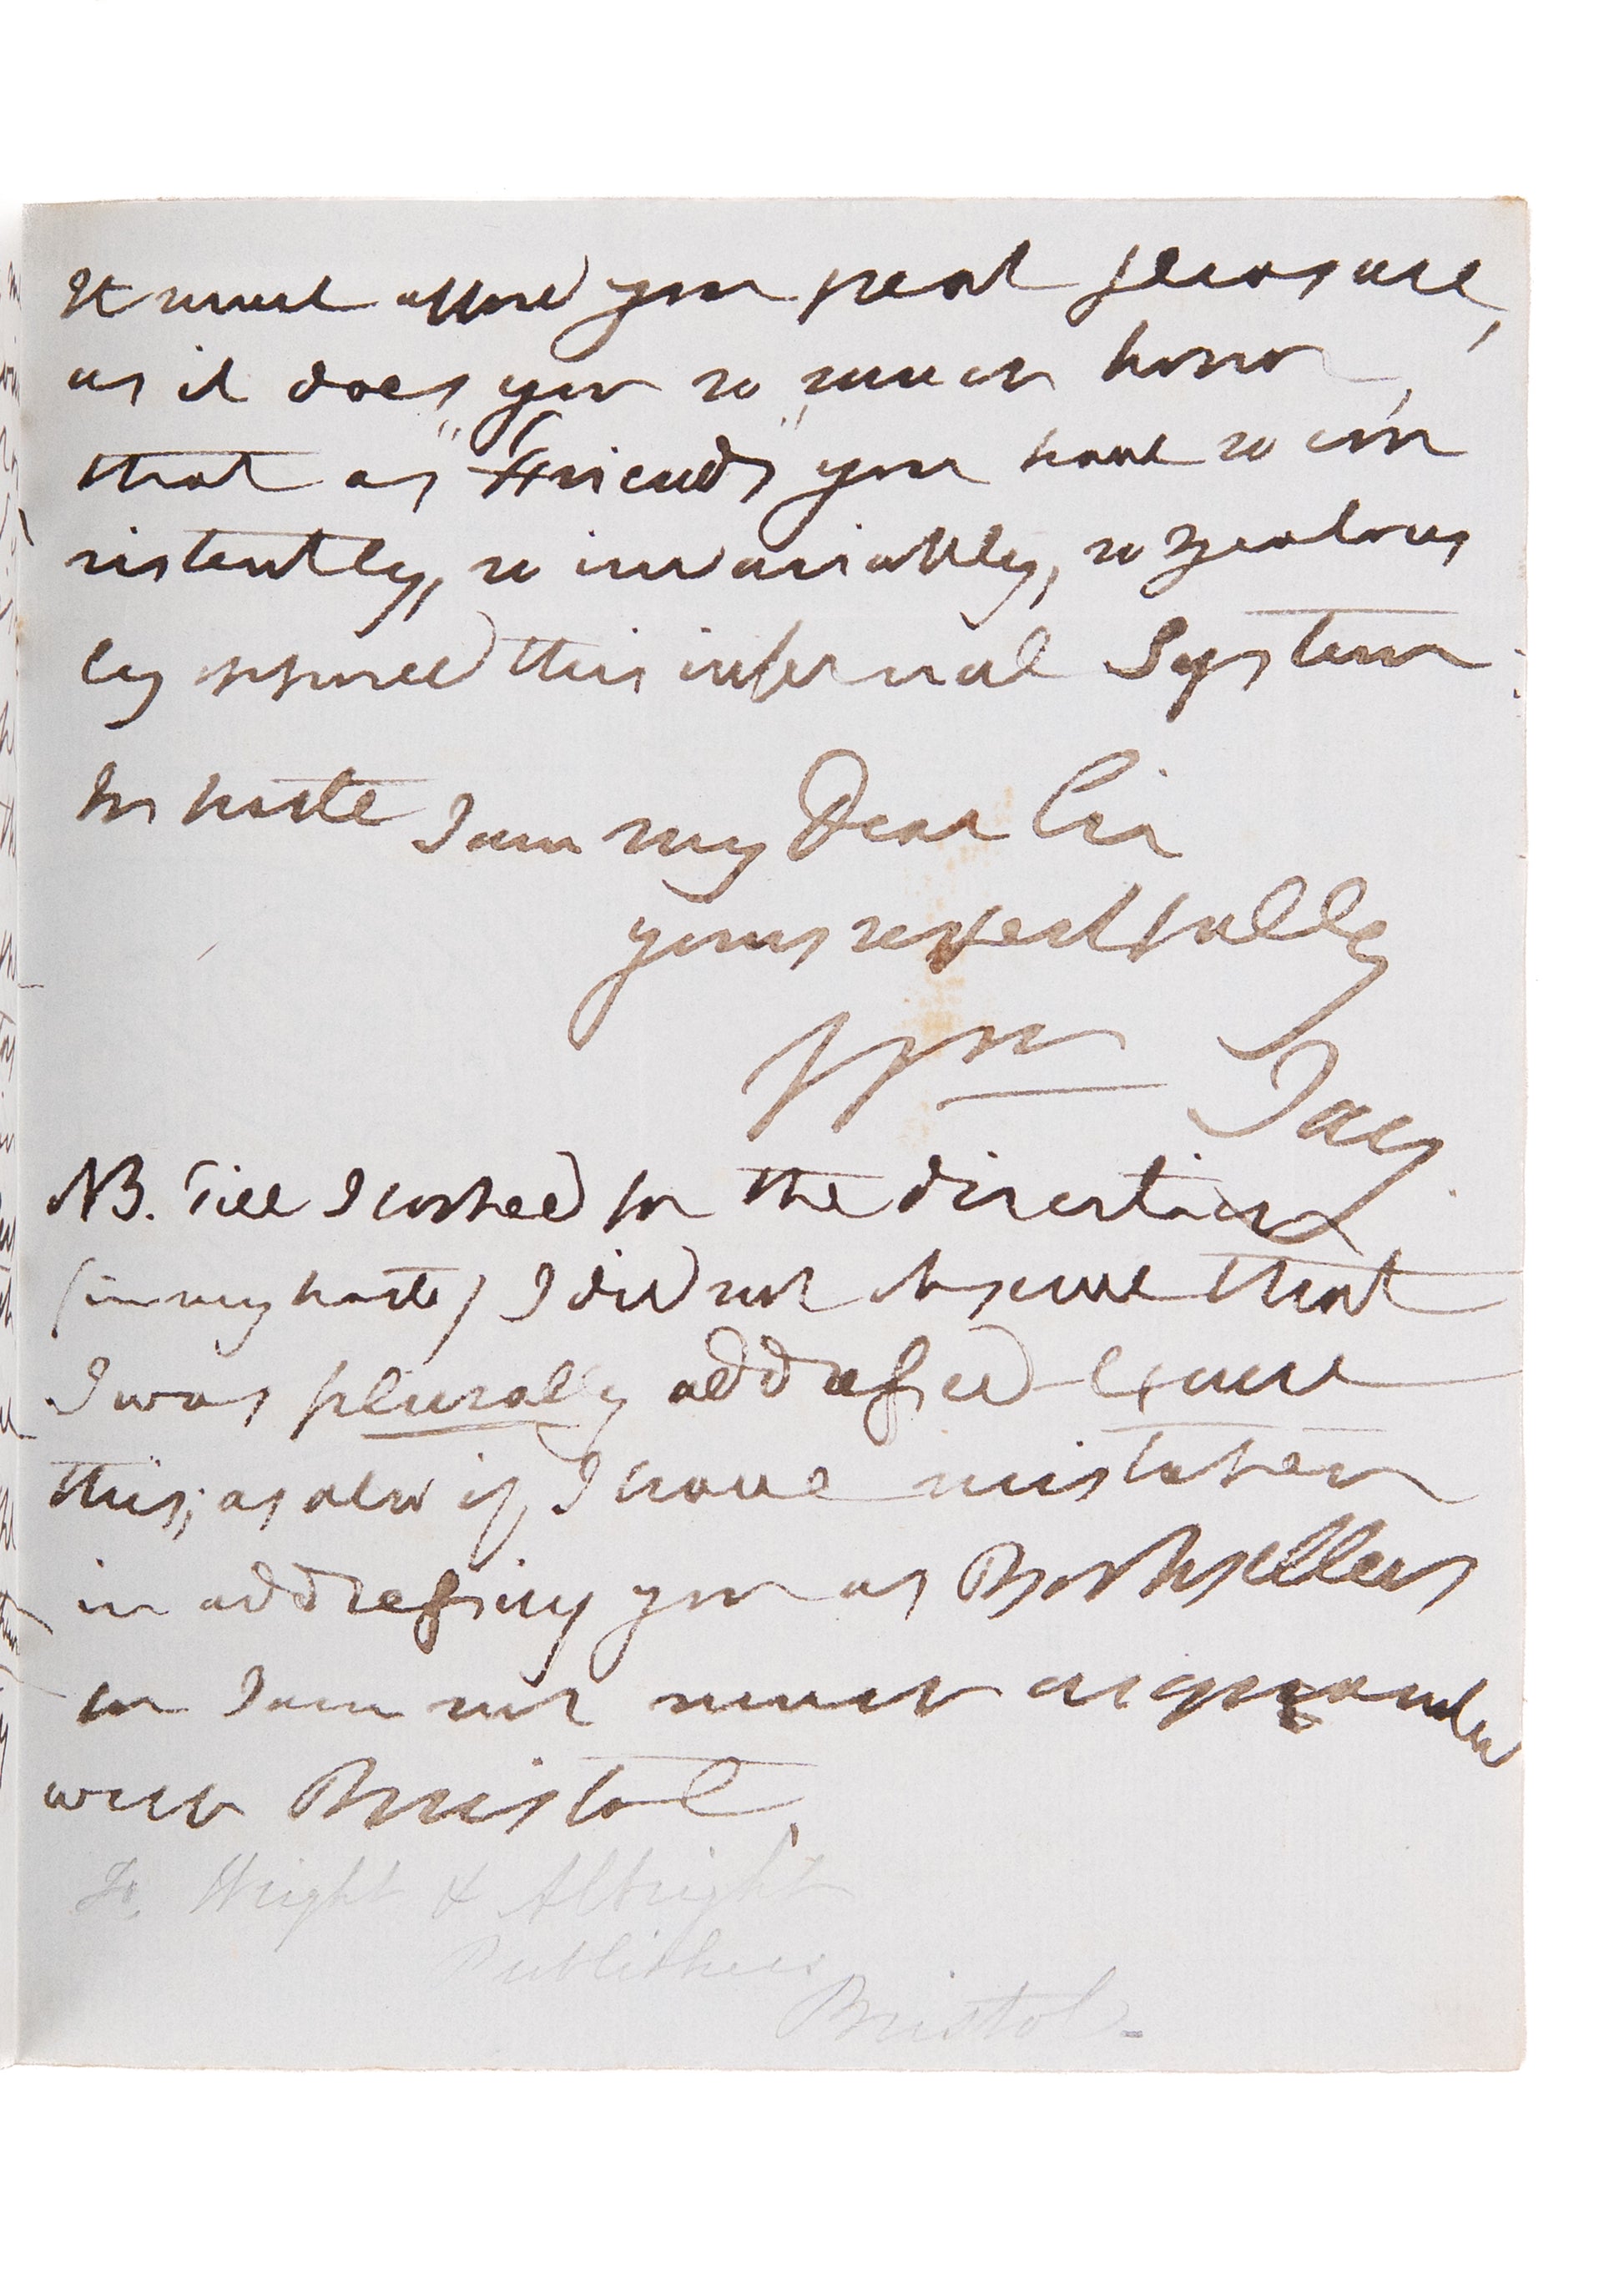 It must afford you great pleasure,
as it does you so much honor,
that as "Friends" you have so con
sistently, so invariably, so zealous
ly opposed this infernal System.
In haste I am my Dear Sir
yours respectfully
Wm Jay
NB. Till I looked for the direction
(in my haste) I did not observe that
I was plurally addressed - Excuse
this, as also if I have mistaken
in addressing you as Booksellers
for I am not much acquainted
with Bristol,
To. Wright & Albright
Publishers
Bristol-